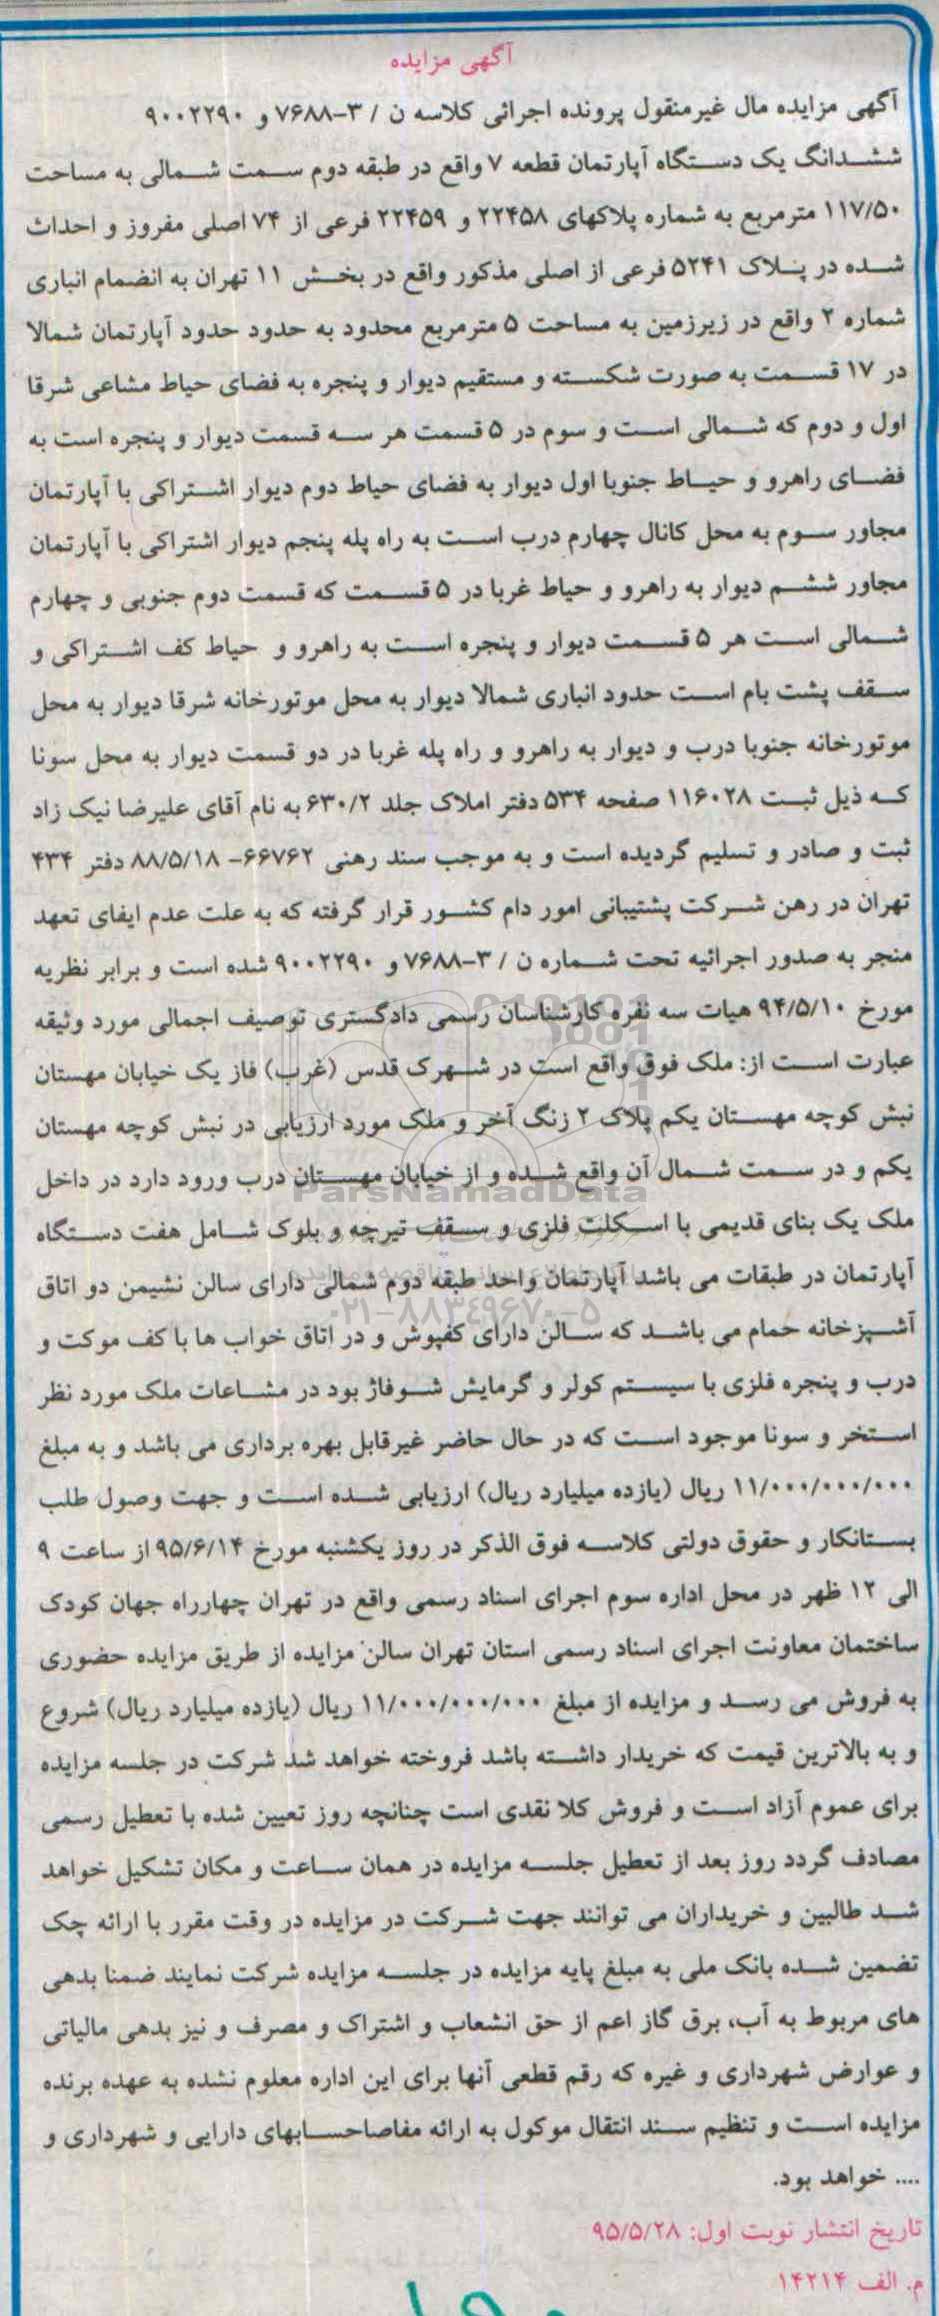 آگهی مزایده
آگهی مزایده مال غیرمنقول پرونده اجرائی کلاسه ن / ۳-۷۶۸۸ و ۹۰۰۲۲۹۰
ششدانگ یک دستگاه آپارتمان قطعه ۷ واقع در طبقه دوم سمت شمالی به مساحت
۱۱۷/۵۰ مترمربع به شماره پلاکهای ۲۲۴۵۸ و ۲۲۴۵۹ فرعی از ۷۴ اصلی مفروز و احداث
شده در پلاک ۵۲۴۱ فرعی از اصلی مذکور واقع در بخش ۱۱ تهران به انضمام انباری
شماره ۲ واقع در زیرزمین به مساحت ۵ مترمربع محدود به حدود حدود آپارتمان شمالا
در ۱۷ قسمت به صورت شکسته و مستقیم دیوار و پنجره به فضای حیاط مشاعی شرقا
اول و دوم که شمالی است و سوم در ۵ قسمت هر سه قسمت دیوار و پنجره است به
فضای راهرو و حیاط جنوبا اول دیوار به فضای حیاط دوم دیوار اشتراکی با آپارتمان
مجاور سوم به محل کانال چهارم درب است به راه پله پنجم دیوار اشتراکی با آپارتمان
مجاور ششم دیوار به راهرو و حیاط غربا در ۵ قسمت که قسمت دوم جنوبی و چهارم
شمالی است هر ۵ قسمت دیوار و پنجره است به راهرو و حیاط کف اشتراکی و
سقف پشت بام است حدود انباری شمالا دیوار به محل موتورخانه شرقا دیوار به محل
موتورخانه جنوبا درب و دیوار به راهرو و راه پله غربا در دو قسمت دیوار به محل سونا
که ذیل ثبت ۱۱۶۰۲۸ صفحه ۵۳۴ دفتر املاک جلد ۶۳۰/۲ به نام آقای علیرضا نیک زاد
ثبت و صادر و تسلیم گردیده است و به موجب سند رهنی ۶۶۷۶۲- ۸۸/۵/۱۸ دفتر ۴۳۴
تهران در رهن شرکت پشتیبانی امور دام کشور قرار گرفته که به علت عدم ایفای تعهد
منجر به صدور اجرائیه تحت شماره ن / ۳-۷۶۸۸ و ۹۰۰۲۲۹۰ شده است و برابر نظریه
مورخ ۹۴/۵/۱۰ هیات سه نفره کارشناسان رسمی دادگستری توصیف اجمالی مورد وثیقه
عبارت است از: ملک فوق واقع است در شهرک قدس (غرب) فاز یک خیابان مهستان
نبش کوچه مهستان یکم پلاک ۲ زنگ آخر و ملک مورد ارزیابی در نبش کوچه مهستان
یکم و در سمت شمال آن واقع شده و از خیابان مهستان درب ورود دارد در داخل
ParsNamadData
ملک یک بنای قدیمی با اسکلت فلزی و سقف تیرچه و بلوک شامل هفت دستگاه
آپارتمان در طبقات می باشد آپارتمان واحد طبقه دوم شمالی دارای سالن نشیمن دو اتاق
۰۲۱-۸۸۳۴۹۶۷۰-۵
آشپزخانه حمام می باشد که سالن دارای کفپوش و در اتاق خواب ها با کف موکت و
درب و پنجره فلزی با سیستم کولر و گرمایش شوفاژ بود در مشاعات ملک مورد نظر
استخر و سونا موجود است که در حال حاضر غیرقابل بهره برداری می باشد و به مبلغ
۱۱/۰۰۰/۰۰۰/۰۰۰ ریال (یازده میلیارد ریال) ارزیابی شده است و جهت وصول طلب
بستانکار و حقوق دولتی کلاسه فوق الذکر در روز یکشنبه مورخ ۹۵/۶/۱۴ از ساعت ۹
الی ۱۲ ظهر در محل اداره سوم اجرای اسناد رسمی واقع در تهران چهارراه جهان کودک
ساختمان معاونت اجرای اسناد رسمی استان تهران سالن مزایده از طریق مزایده حضوری
به فروش می رسد و مزایده از مبلغ ۱۱/۰۰۰/۰۰۰/۰۰۰ ریال (یازده میلیارد ریال) شروع
و به بالاترین قیمت که خریدار داشته باشد فروخته خواهد شد شرکت در جلسه مزایده
برای عموم آزاد است و فروش کلا نقدی است چنانچه روز تعیین شده با تعطیل رسمی
مصادف گردد روز بعد از تعطیل جلسه مزایده در همان ساعت و مکان تشکیل خواهد
شد طالبین و خریداران می توانند جهت شرکت در مزایده در وقت مقرر با ارائه چک
تضمین شده بانک ملی به مبلغ پایه مزایده در جلسه مزایده شرکت نمایند ضمنا بدهی
های مربوط به آب، برق گاز اعم از حق انشعاب و اشتراک و مصرف و نیز بدهی مالیاتی
و عوارض شهرداری و غیره که رقم قطعی آنها برای این اداره معلوم نشده به عهده برنده
مزایده است و تنظیم سند انتقال موکول به ارائه مفاصاحسابهای دارایی و شهرداری و
.... خواهد بود.
تاریخ انتشار نوبت اول: ۹۵/۵/۲۸
م. الف ۱۴۲۱۴